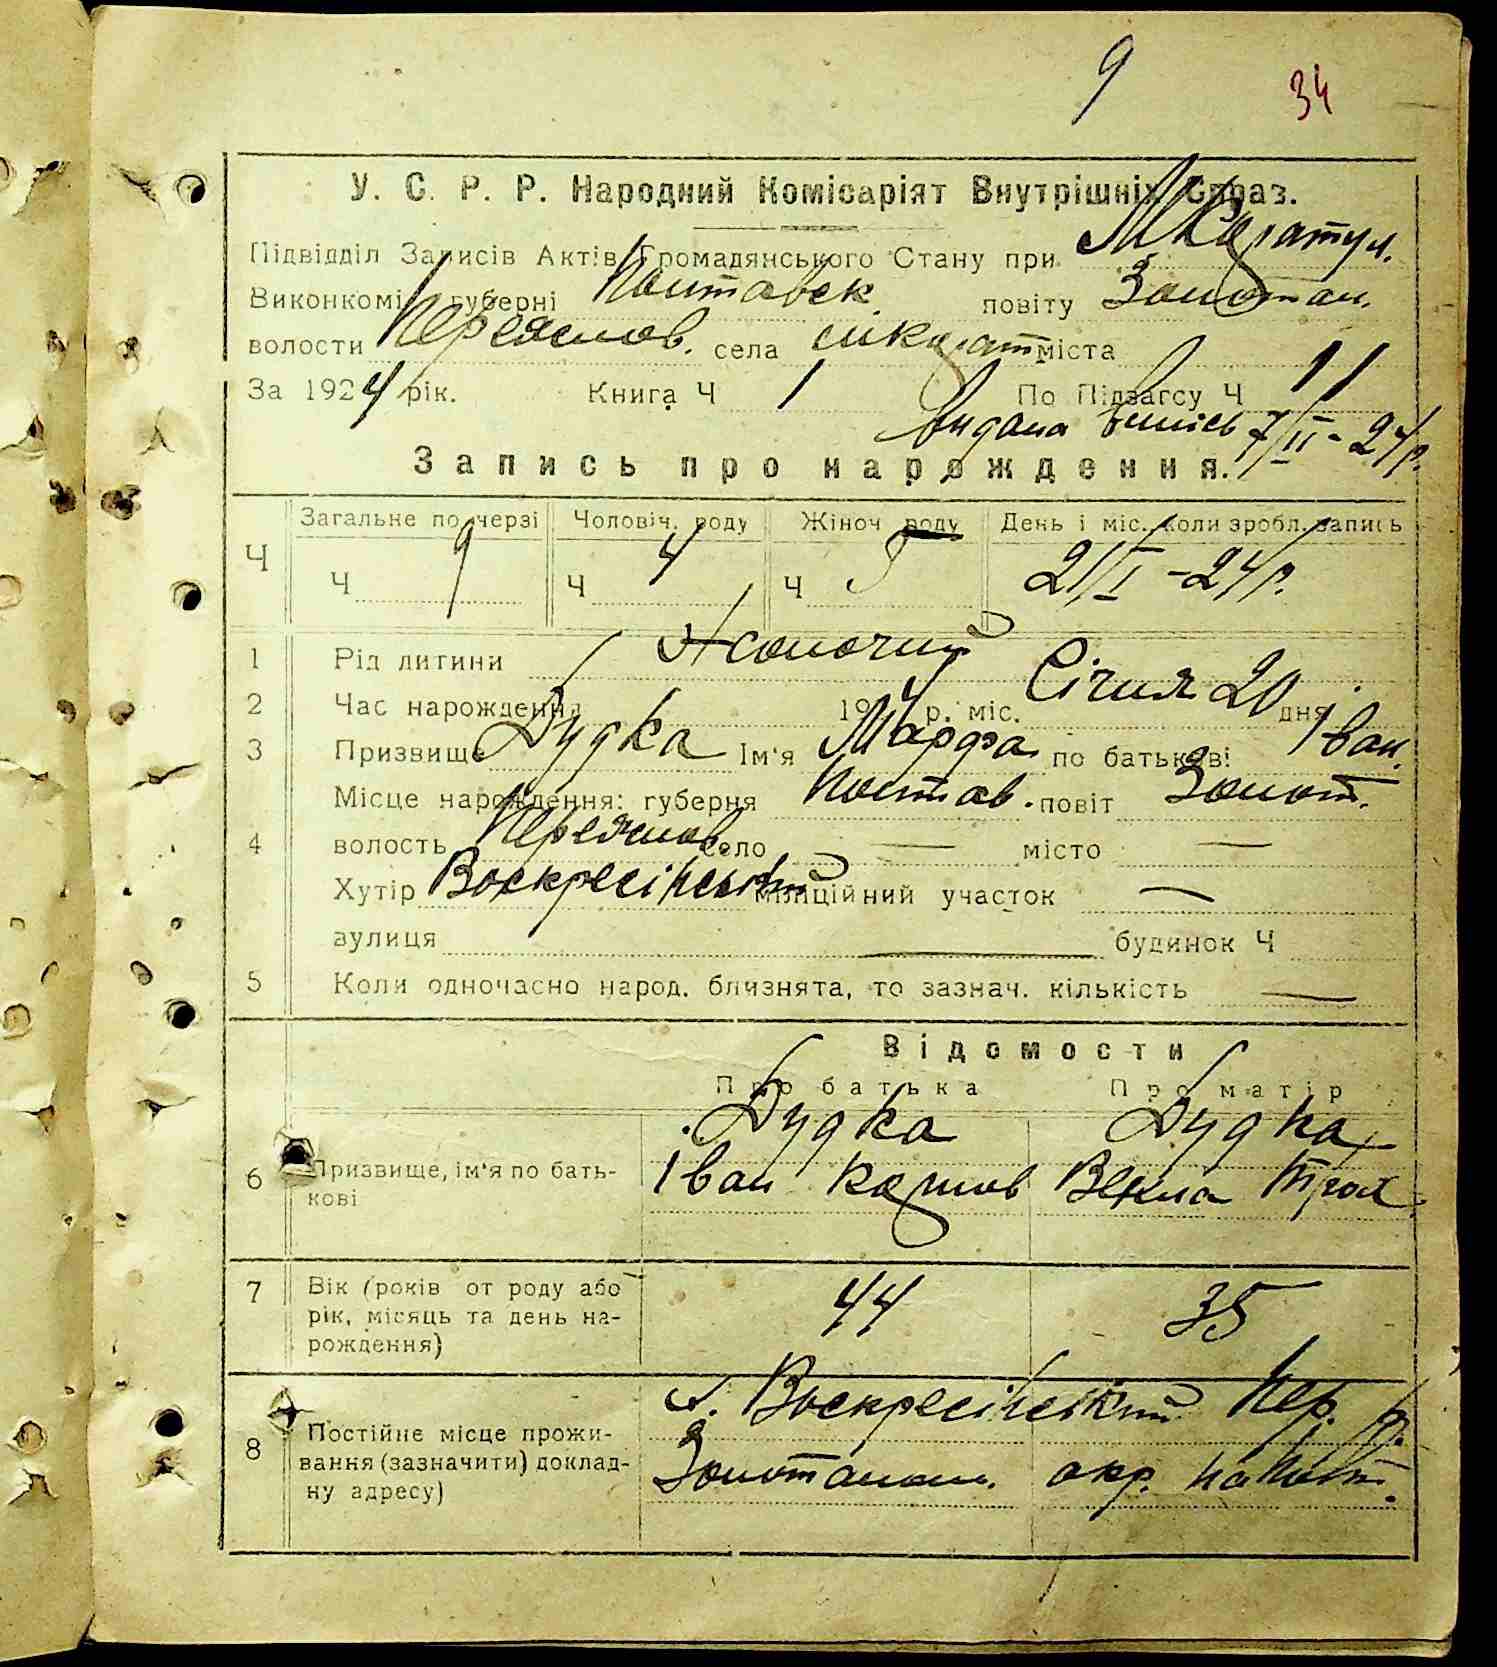 9 34
У. С. Р. Р. Народний Комісаріят Внутрішніх Справ.
Підвідділ Записів Актів Громадянського Стану при М Каратул.
Виконкомі губерні Полтавск повіту Золотон.
волости Переяслов. села мКарат міста
За 1924 рік. Книга Ч 1 По Підзагсу Ч 11
Видана випісь 7/II - 24 р.
Запись про народження.
Ч Загальне по черзі Чоловіч. роду Жіноч роду День і міс. коли зробл. запись
Ч 9 Ч 4 Ч 5 21/I - 24 р.
1 Рід дитини Жоночий
2 Час народження 1924 р. міс. Січня 20 дня
3 Призвище Дудка Ім'я Марфа по батькові Іван.
4 Місце народження: губерня Полтав. повіт Золот.
волость Переяслов. село — місто —
Хутір Воскресінський міліційний участок —
вулиця — будинок Ч
5 Коли одночасно народ. близнята, то зазнач. кількість —
Відомости
Про батька Про матір
6 Призвище, ім'я по батькові Дудка Дудка
Іван Карпов Векла Троф.
7 Вік (років от роду або рік, місяць та день народження) 44 35
8 Постійне місце проживання (зазначити) докладну адресу) х. Воскресінський Пер. р.
Золотонош. окр. на Полт.